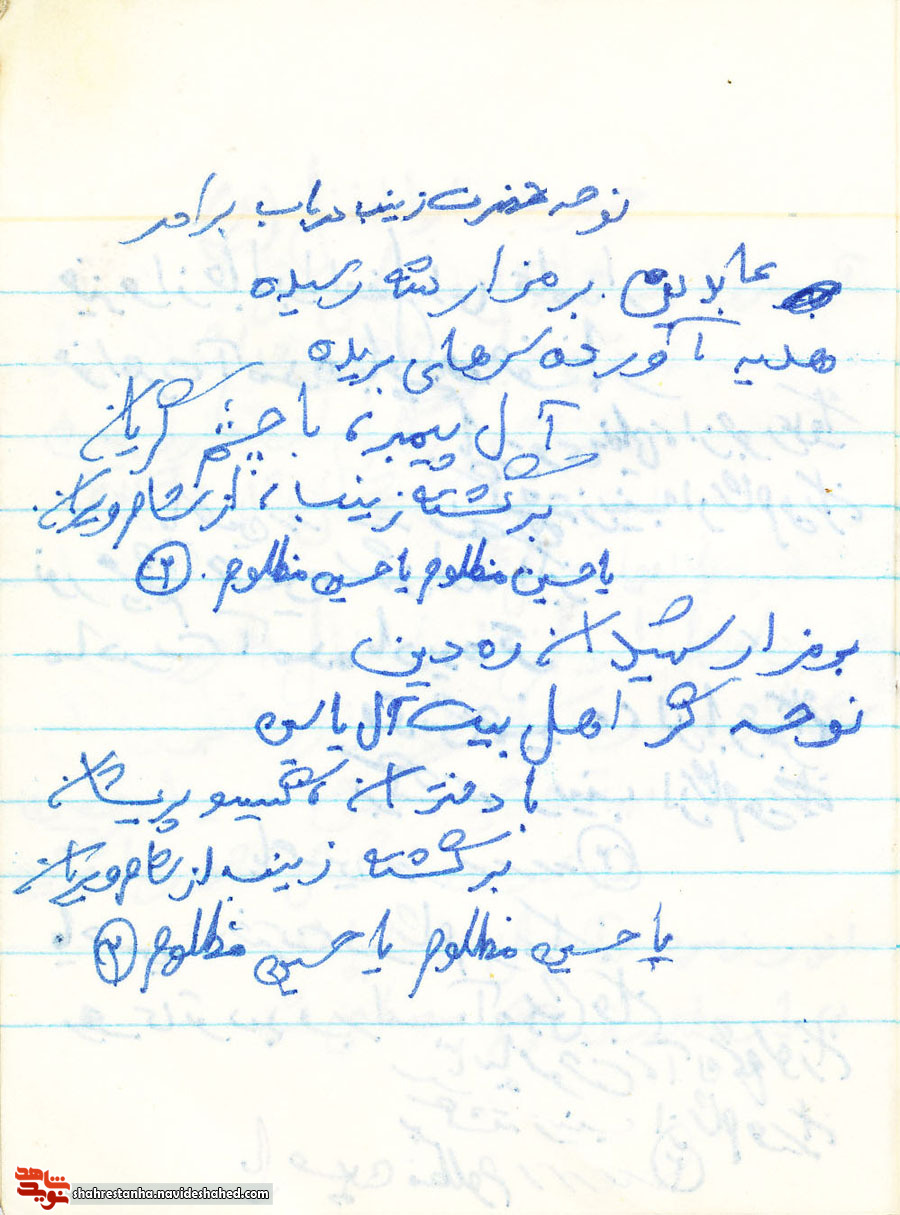 نوحه حضرت زینب در باب برادر
بر مزار تشنه رسیده
هدیه آورده سرهای بریده
آل پیمبر، با چشم گریان
برگشته زینب، از شام ویران
یا حسین مظلوم یا حسین مظلوم. (۲)
بر مزار شهیدان ره دین
نوحه گر اهل بیت آل یاسین
با دختران، گیسو پریشان
برگشته زینب از شام ویران
یا حسین مظلوم یا حسین مظلوم (۲)
نوید شاهد
shahrestanha.navideshahed.com